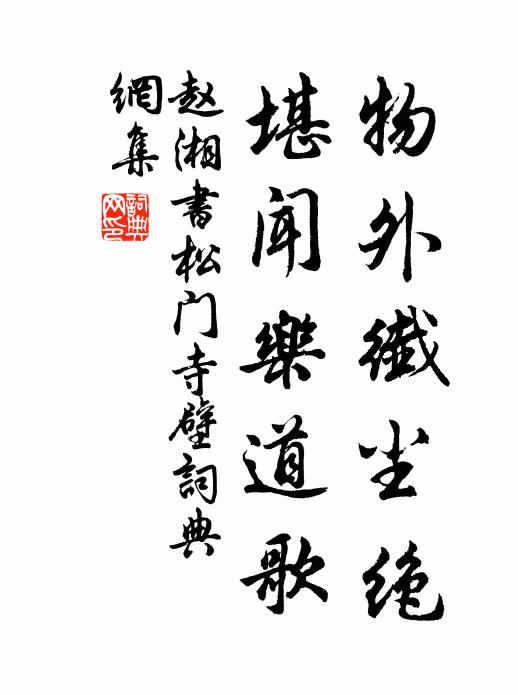 物外纎尘绝
堪闻樂道歌
赵湘書松门寺壁詞典
網集
詞典网印